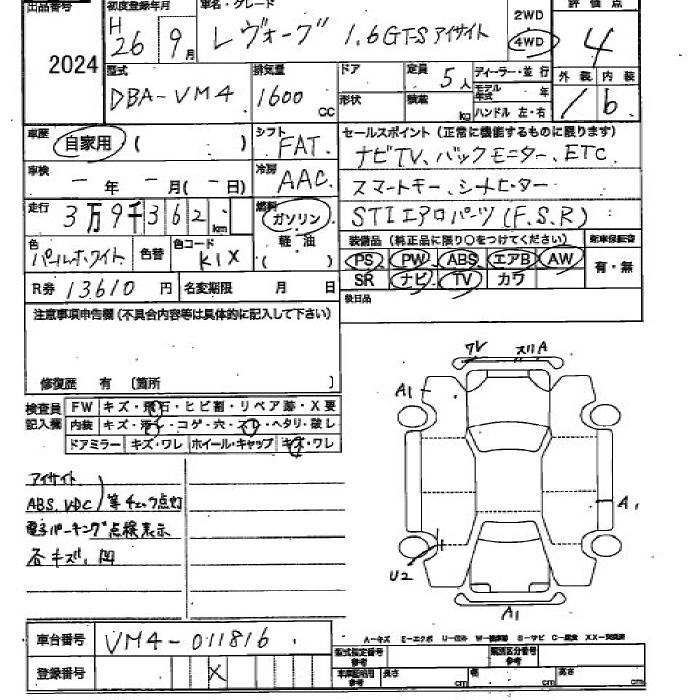 出品番号 初度登録年月 車名・グレード 2WD 評価点
2024 H26 9月 レヴォーグ 1.6GT-S アイサイト 4WD 4
型式 排気量 ドア 定員 5人 ディーラー・並行 外装 内装
DBA-VM4 1600 CC 形状 積載 kg モデル年式 年 ハンドル 左・右 b
車歴 自家用 ( ) シフト FAT. セールスポイント (正常に機能するものに限ります)
車検 - 年 - 月(-日) 冷房 AAC. ナビTV、バックモニター、ETC.
スマートキー、シートヒーター
走行 3万9千362km 燃料 ガソリン STIエアロパーツ(F.S.R)
色 パールホワイト 色替 色コード K1X 軽油 ( )
装備品 (純正品に限り○をつけてください) 新車保証書
PS PW ABS エアB AW 有・無
R券 13610円 名変期限 月 日 SR ナビ TV カワ
後日品
注意事項申告欄(不具合内容等は具体的に記入して下さい)
修復歴 有 (箇所 )
検査員記入欄 FW キズ・飛石・ヒビ割・リペア跡・X要
内装 キズ・汚レ・コゲ・穴・スレ・ヘタリ・破レ
ドアミラー キズ・ワレ ホイール・キャップ キズ・ワレ
ワレ スリA
A1
アイサイト
ABS.VDC 等チェック点灯
電子パーキング点検表示
各キズ、凹
A1
U2
A1
車台番号 VM4-011816
A-キズ E-エクボ
登録番号 X
型式指定番号 参考 類別区分番号 参考
長さ cm 幅 cm 高さ cm